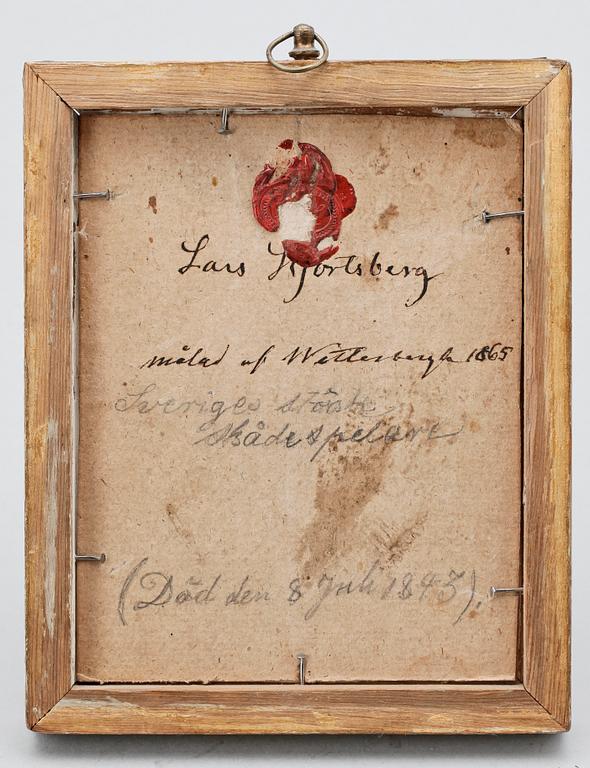 Lars Hjortsberg
målad af Wetterbergh 1865
Sveriges störste
skådespelare
(Död den 8 Juli 1843).